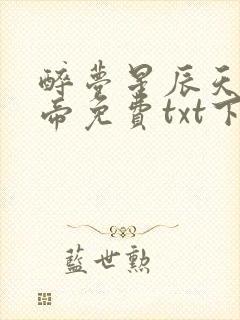 醉夢星辰天
帝免費txt下
藍世勲